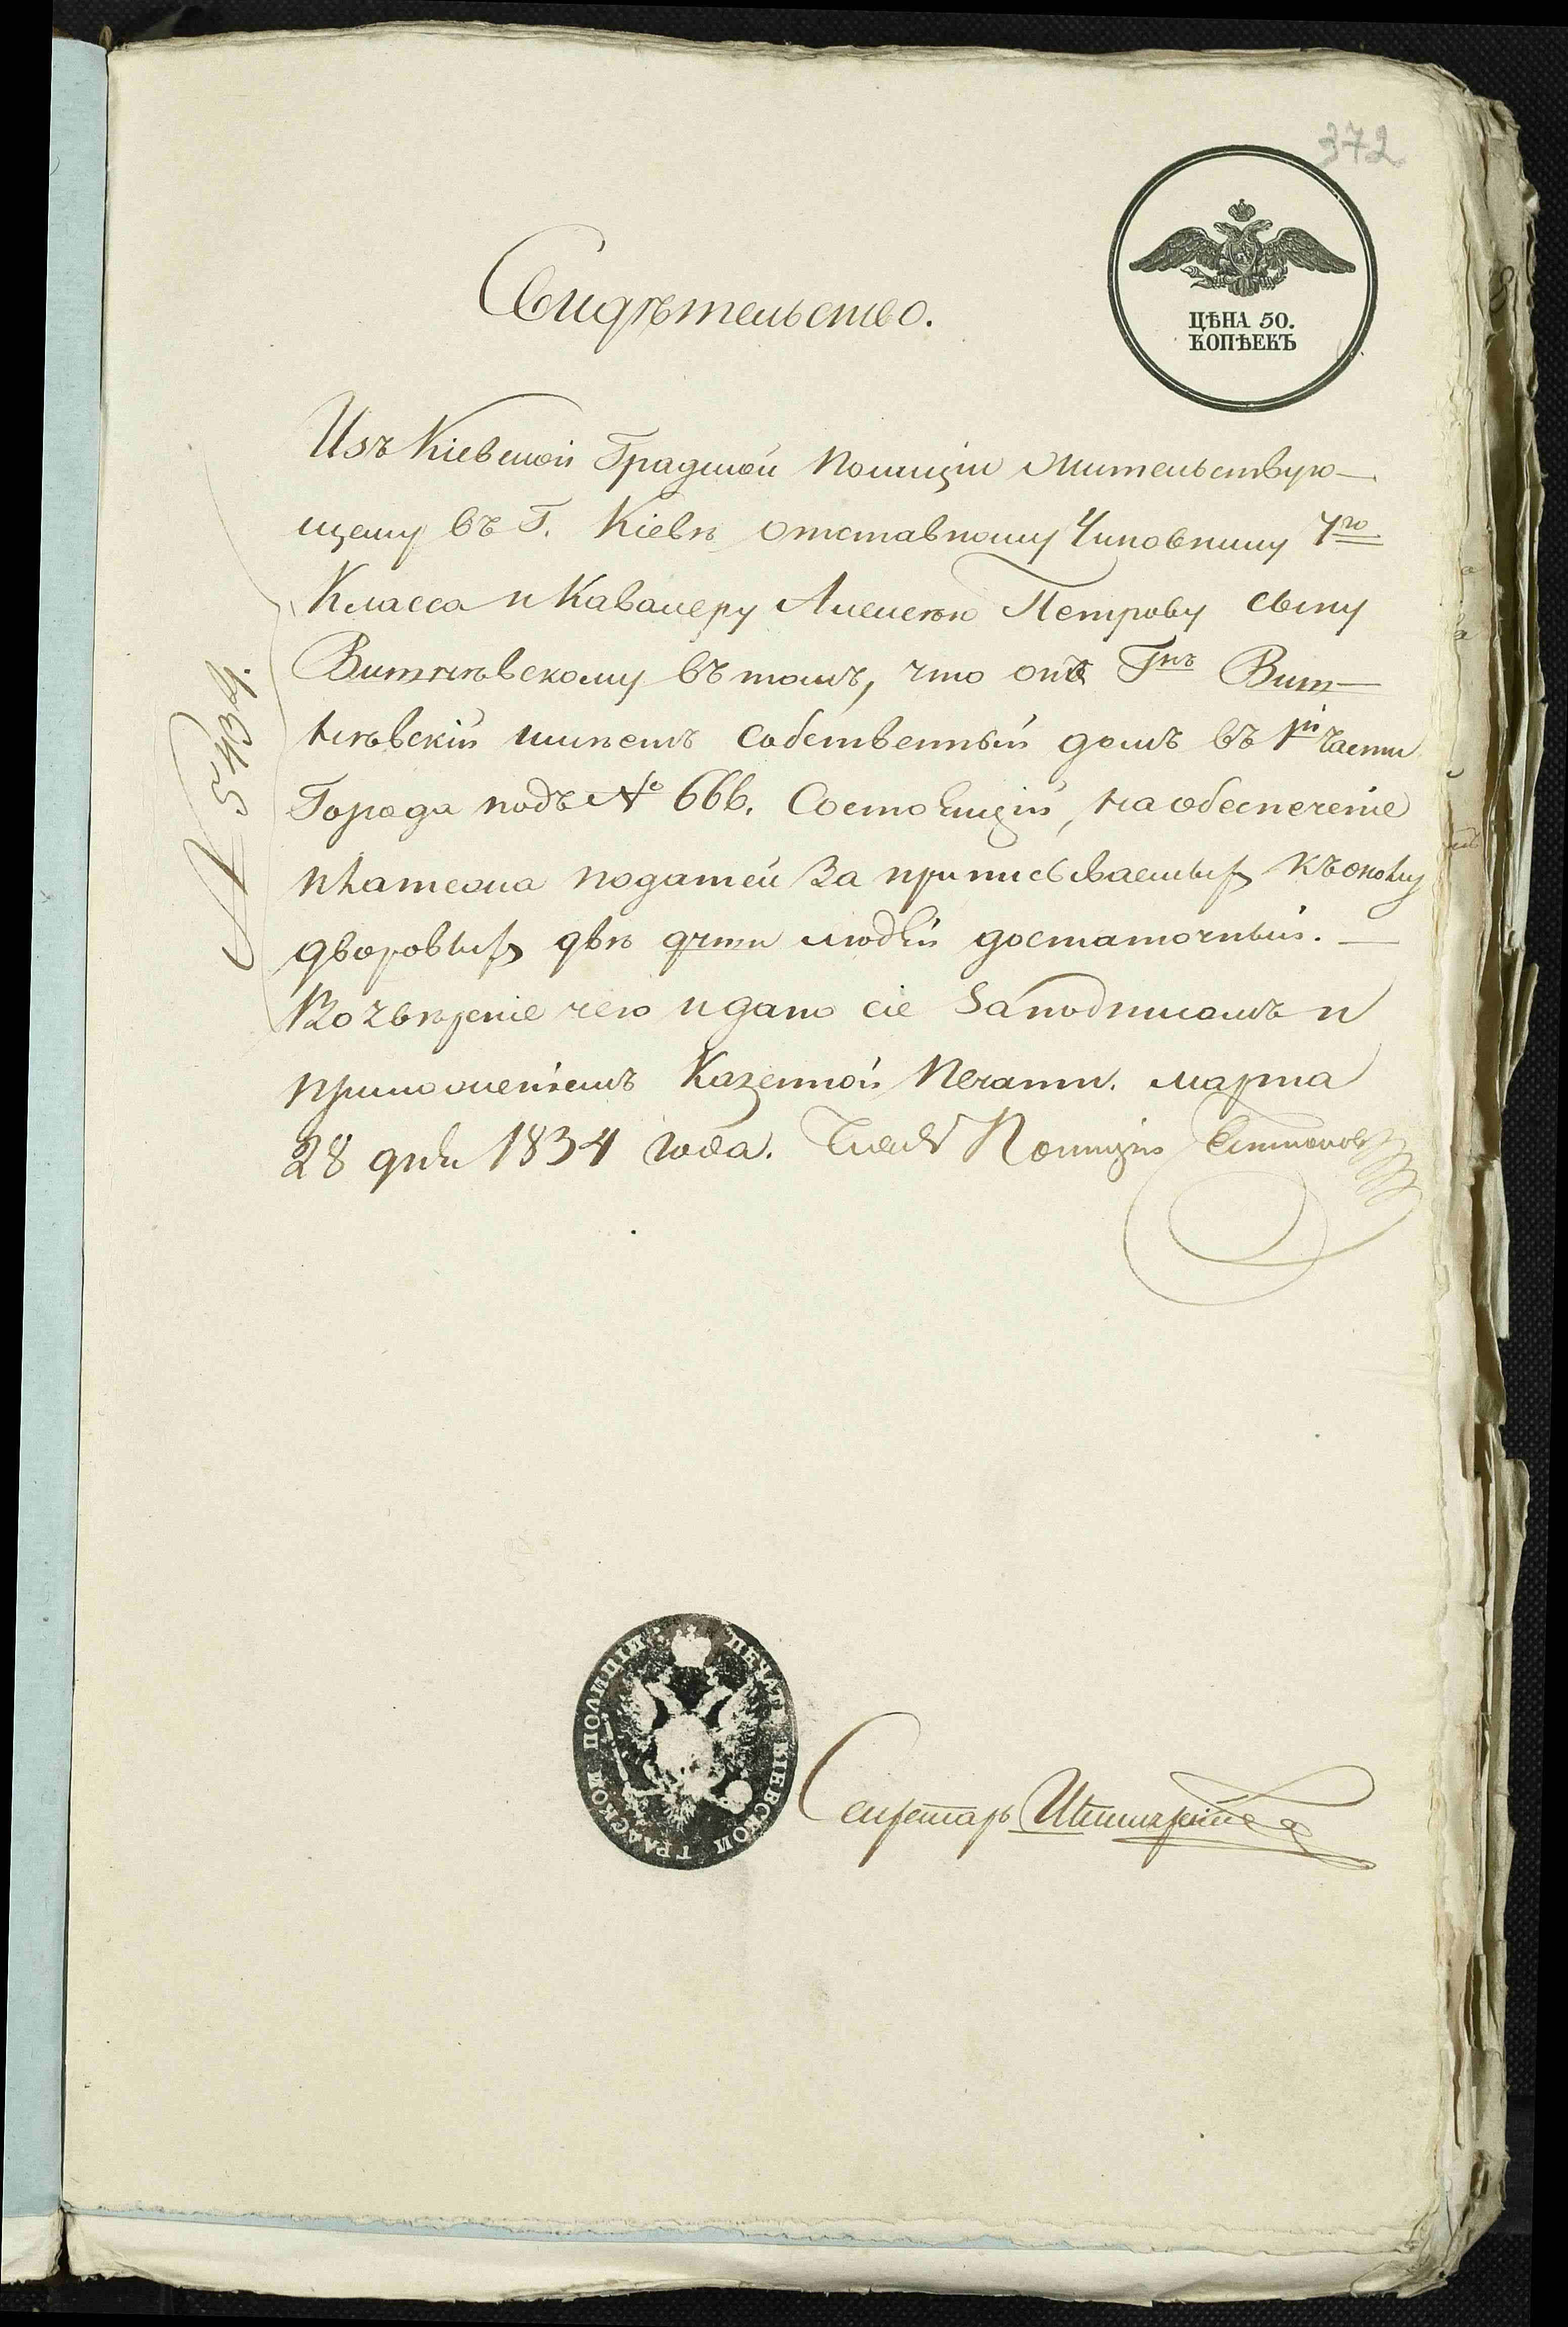 372
ЦѢНА 50.
КОПѢЕКЪ
Свидѣтельство.
Изъ Кіевской Градской Полиціи жительствую-
щему въ Г. Кіевѣ отставному Чиновнику 7го
Класса и Кавалеру Алексѣю Петрову сыну
Витнѣвскому въ томъ, что онъ Гнъ Вит-
нѣвскій имѣетъ собственный домъ въ 1й части
Города подъ № 666. Состоящій, на обеспеченіе
платежа податей за приписываемыхъ къ оному
дворовыхъ двѣ душь людей достаточный. —
Во увѣреніе чего и дано сіе за подписомъ и
приложеніемъ Казенной Печати. марта
28 дня 1834 года. Членъ Полиціи
№ 5434.
ПЕЧАТЬ КІЕВСКОЙ ГРАДСКОЙ ПОЛИЦІИ
Секретарь